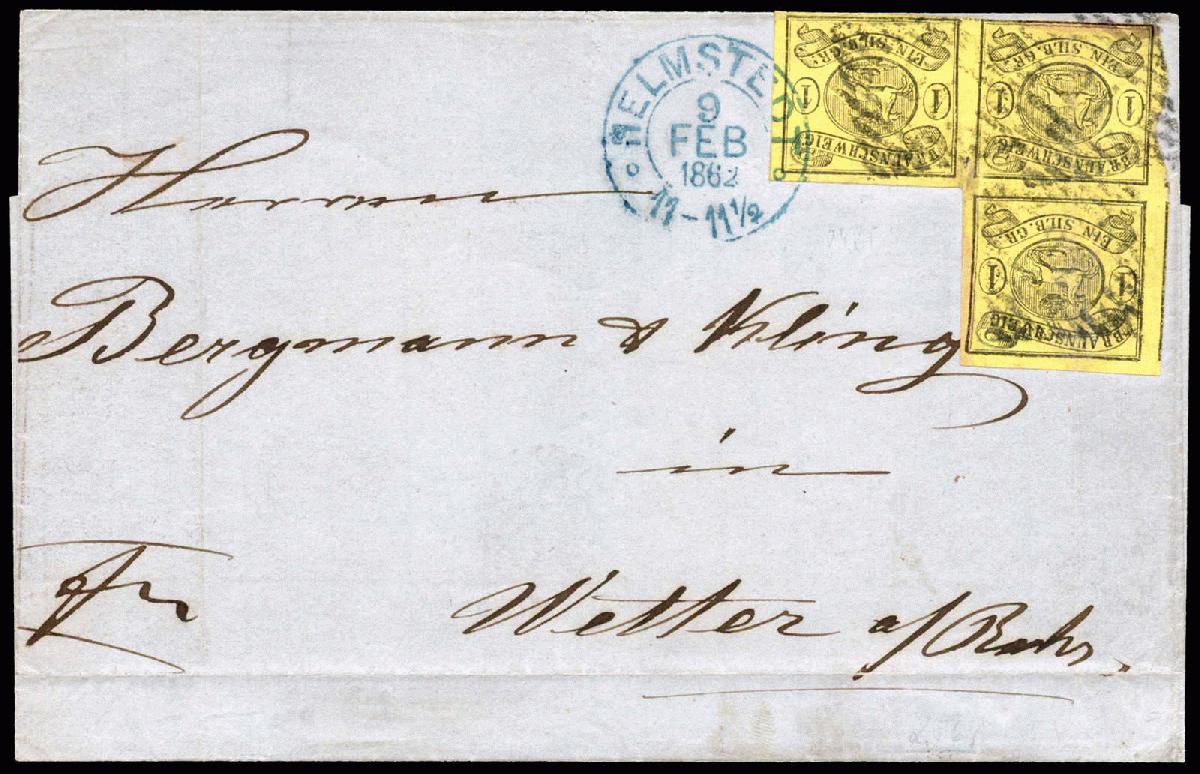 HELMSTEDT
9
FEB
1862
11-11½
EIN SILB. GR.
1 1
BRAUNSCHWEIG
EIN SILB. GR.
1 1
BRAUNSCHWEIG
EIN SILB. GR.
1 1
BRAUNSCHWEIG
Herren
Bergmann & Kling
in
Fr
Wetter a/Ruhr.